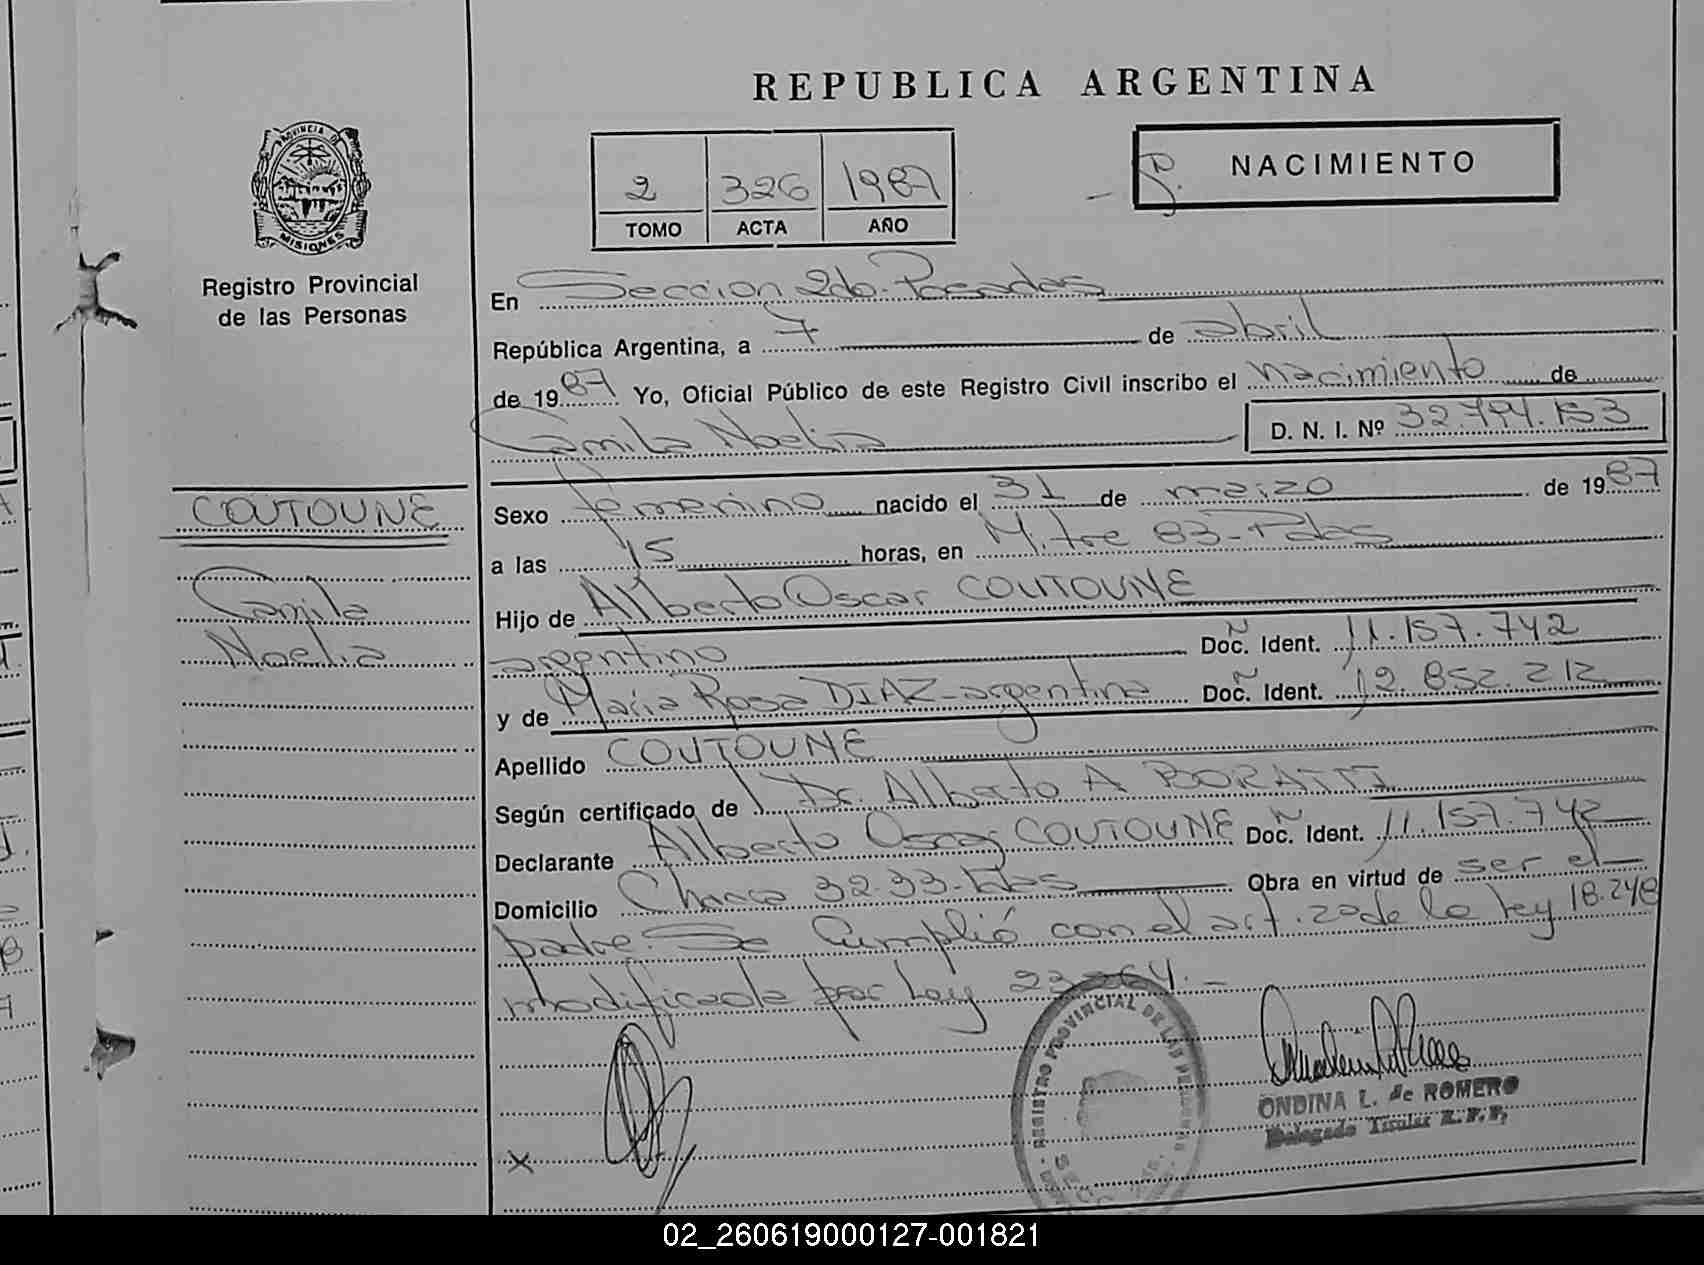 REPUBLICA ARGENTINA
PROVINCIA DE
MISIONES
Registro Provincial
de las Personas
2 326 1987
TOMO ACTA AÑO
NACIMIENTO
En Seccion 2do. Posadas
República Argentina, a 7 de abril
de 1987 Yo, Oficial Público de este Registro Civil inscribo el nacimiento de
Camila Noelia D. N. I. Nº 32.794.153
COUTOUNE
Camila
Noelia
Sexo femenino nacido el 31 de marzo de 1987
a las 15 horas, en Mitre 83-Pdas
Hijo de Alberto Oscar COUTOUNE
argentino Doc. Ident. 11.157.742
y de María Rosa DIAZ-argentina Doc. Ident. 12.852.212
Apellido COUTOUNE
Según certificado de Dr. Alberto A BORATTI
Declarante Alberto Oscar COUTOUNE Doc. Ident. 11.157.742
Domicilio Chacra 32-33-Pdas Obra en virtud de ser el
padre. Se Cumplió con el art. 2º de la ley 18.248
modificada por Ley 23264.-
REGISTRO PROVINCIAL DE LAS PERSONAS
ONDINA L. de ROMERO
Delegado Titular R. P. P.
02_260619000127-001821